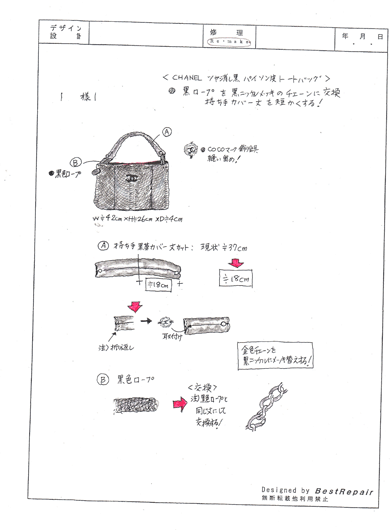 デザイン
設計
修理
Re-make
年 月 日
< CHANEL ツヤ消し黒 パイソン皮トートバッグ >
様
◎ 黒ロープを黒ニッケルメッキのチェーンに交換
持ち手カバー丈を短かくする!
A
B
◎黒色ロープ
◎ COCOマーク飾り具
縫い留め!
W≑42cm×H≑26cm×D≑4cm
A 持ち手黒革カバー丈カット: 現状≑37cm
≑18cm
≑18cm
注)折り返し
金色チェーンを
黒ニッケルにメッキ替えする!
B 黒色ロープ
<交換>
同じ丈にして
交換する!
Designed by BestRepair
無断転載他利用禁止